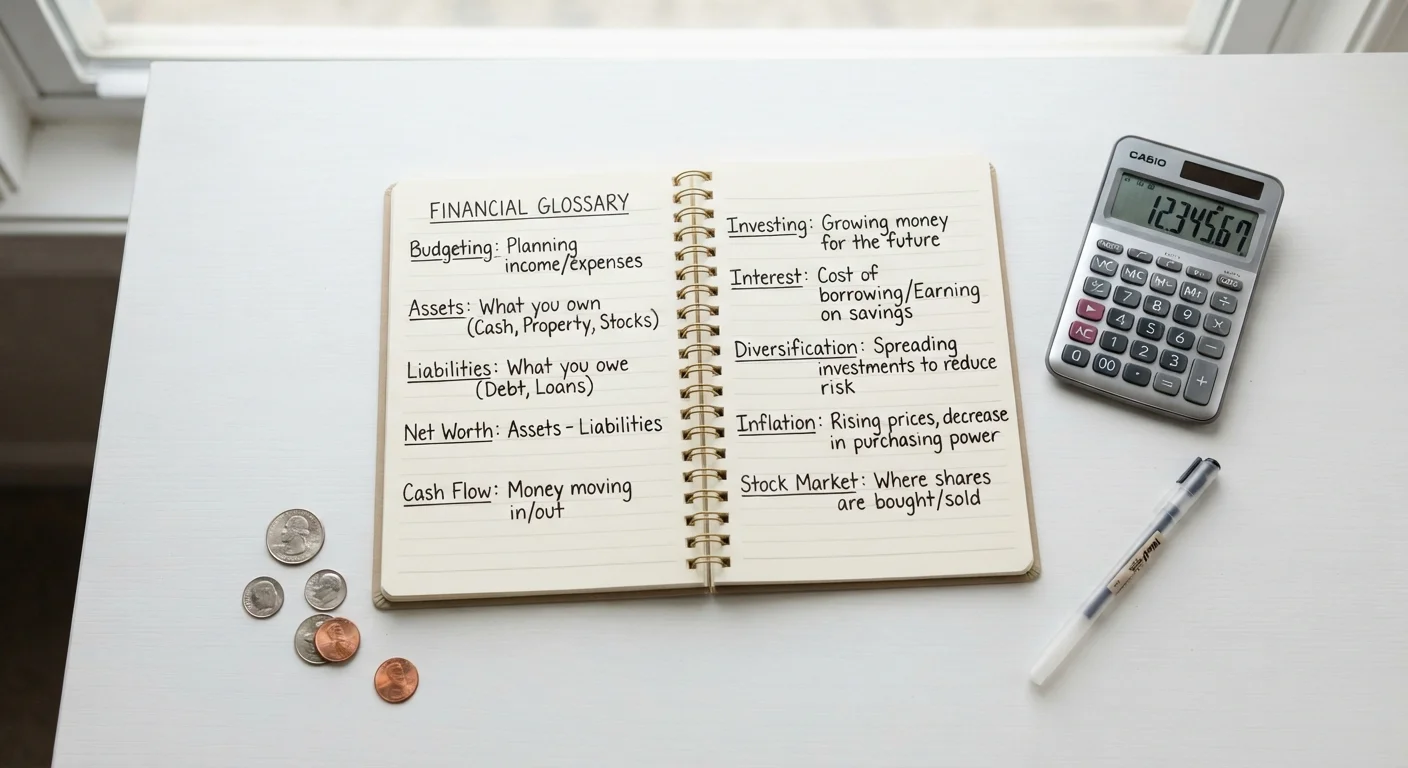 FINANCIAL GLOSSARY
Budgeting: Planning
income/expenses
Assets: What you own
(Cash, Property, Stocks)
Liabilities: What you owe
(Debt, Loans)
Net Worth: Assets - Liabilities
Cash Flow: Money moving
in/out
Investing: Growing money
for the future
Interest: Cost of
borrowing/Earning
on savings
Diversification: Spreading
investments to reduce
risk
Inflation: Rising prices, decrease
in purchasing power
Stock Market: Where shares
are bought/sold
CASIO
7 8 9 ÷
4 5 6 ×
1 2 3 −
0 00 · = +